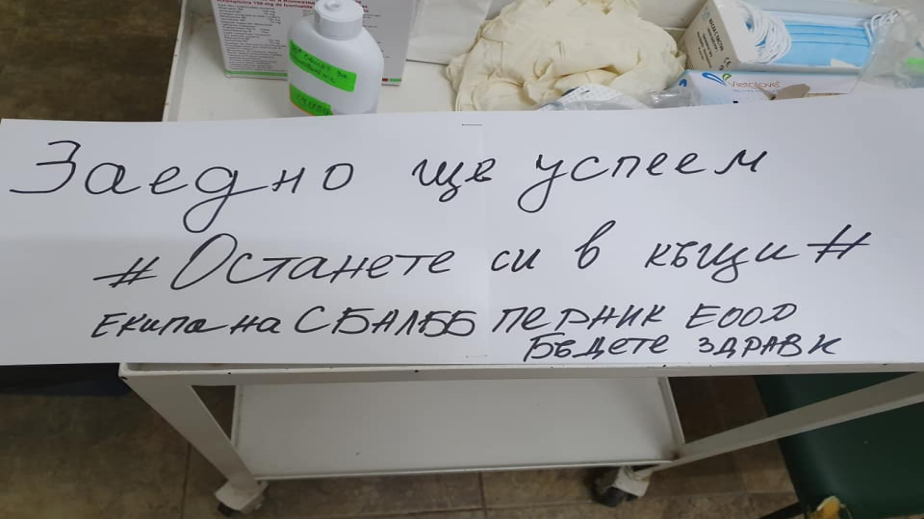 Заедно ще успеем
#Останете си в къщи#
Екипа на СБАЛББ ПЕРНИК ЕООД
БЪДЕТЕ ЗДРАВИ